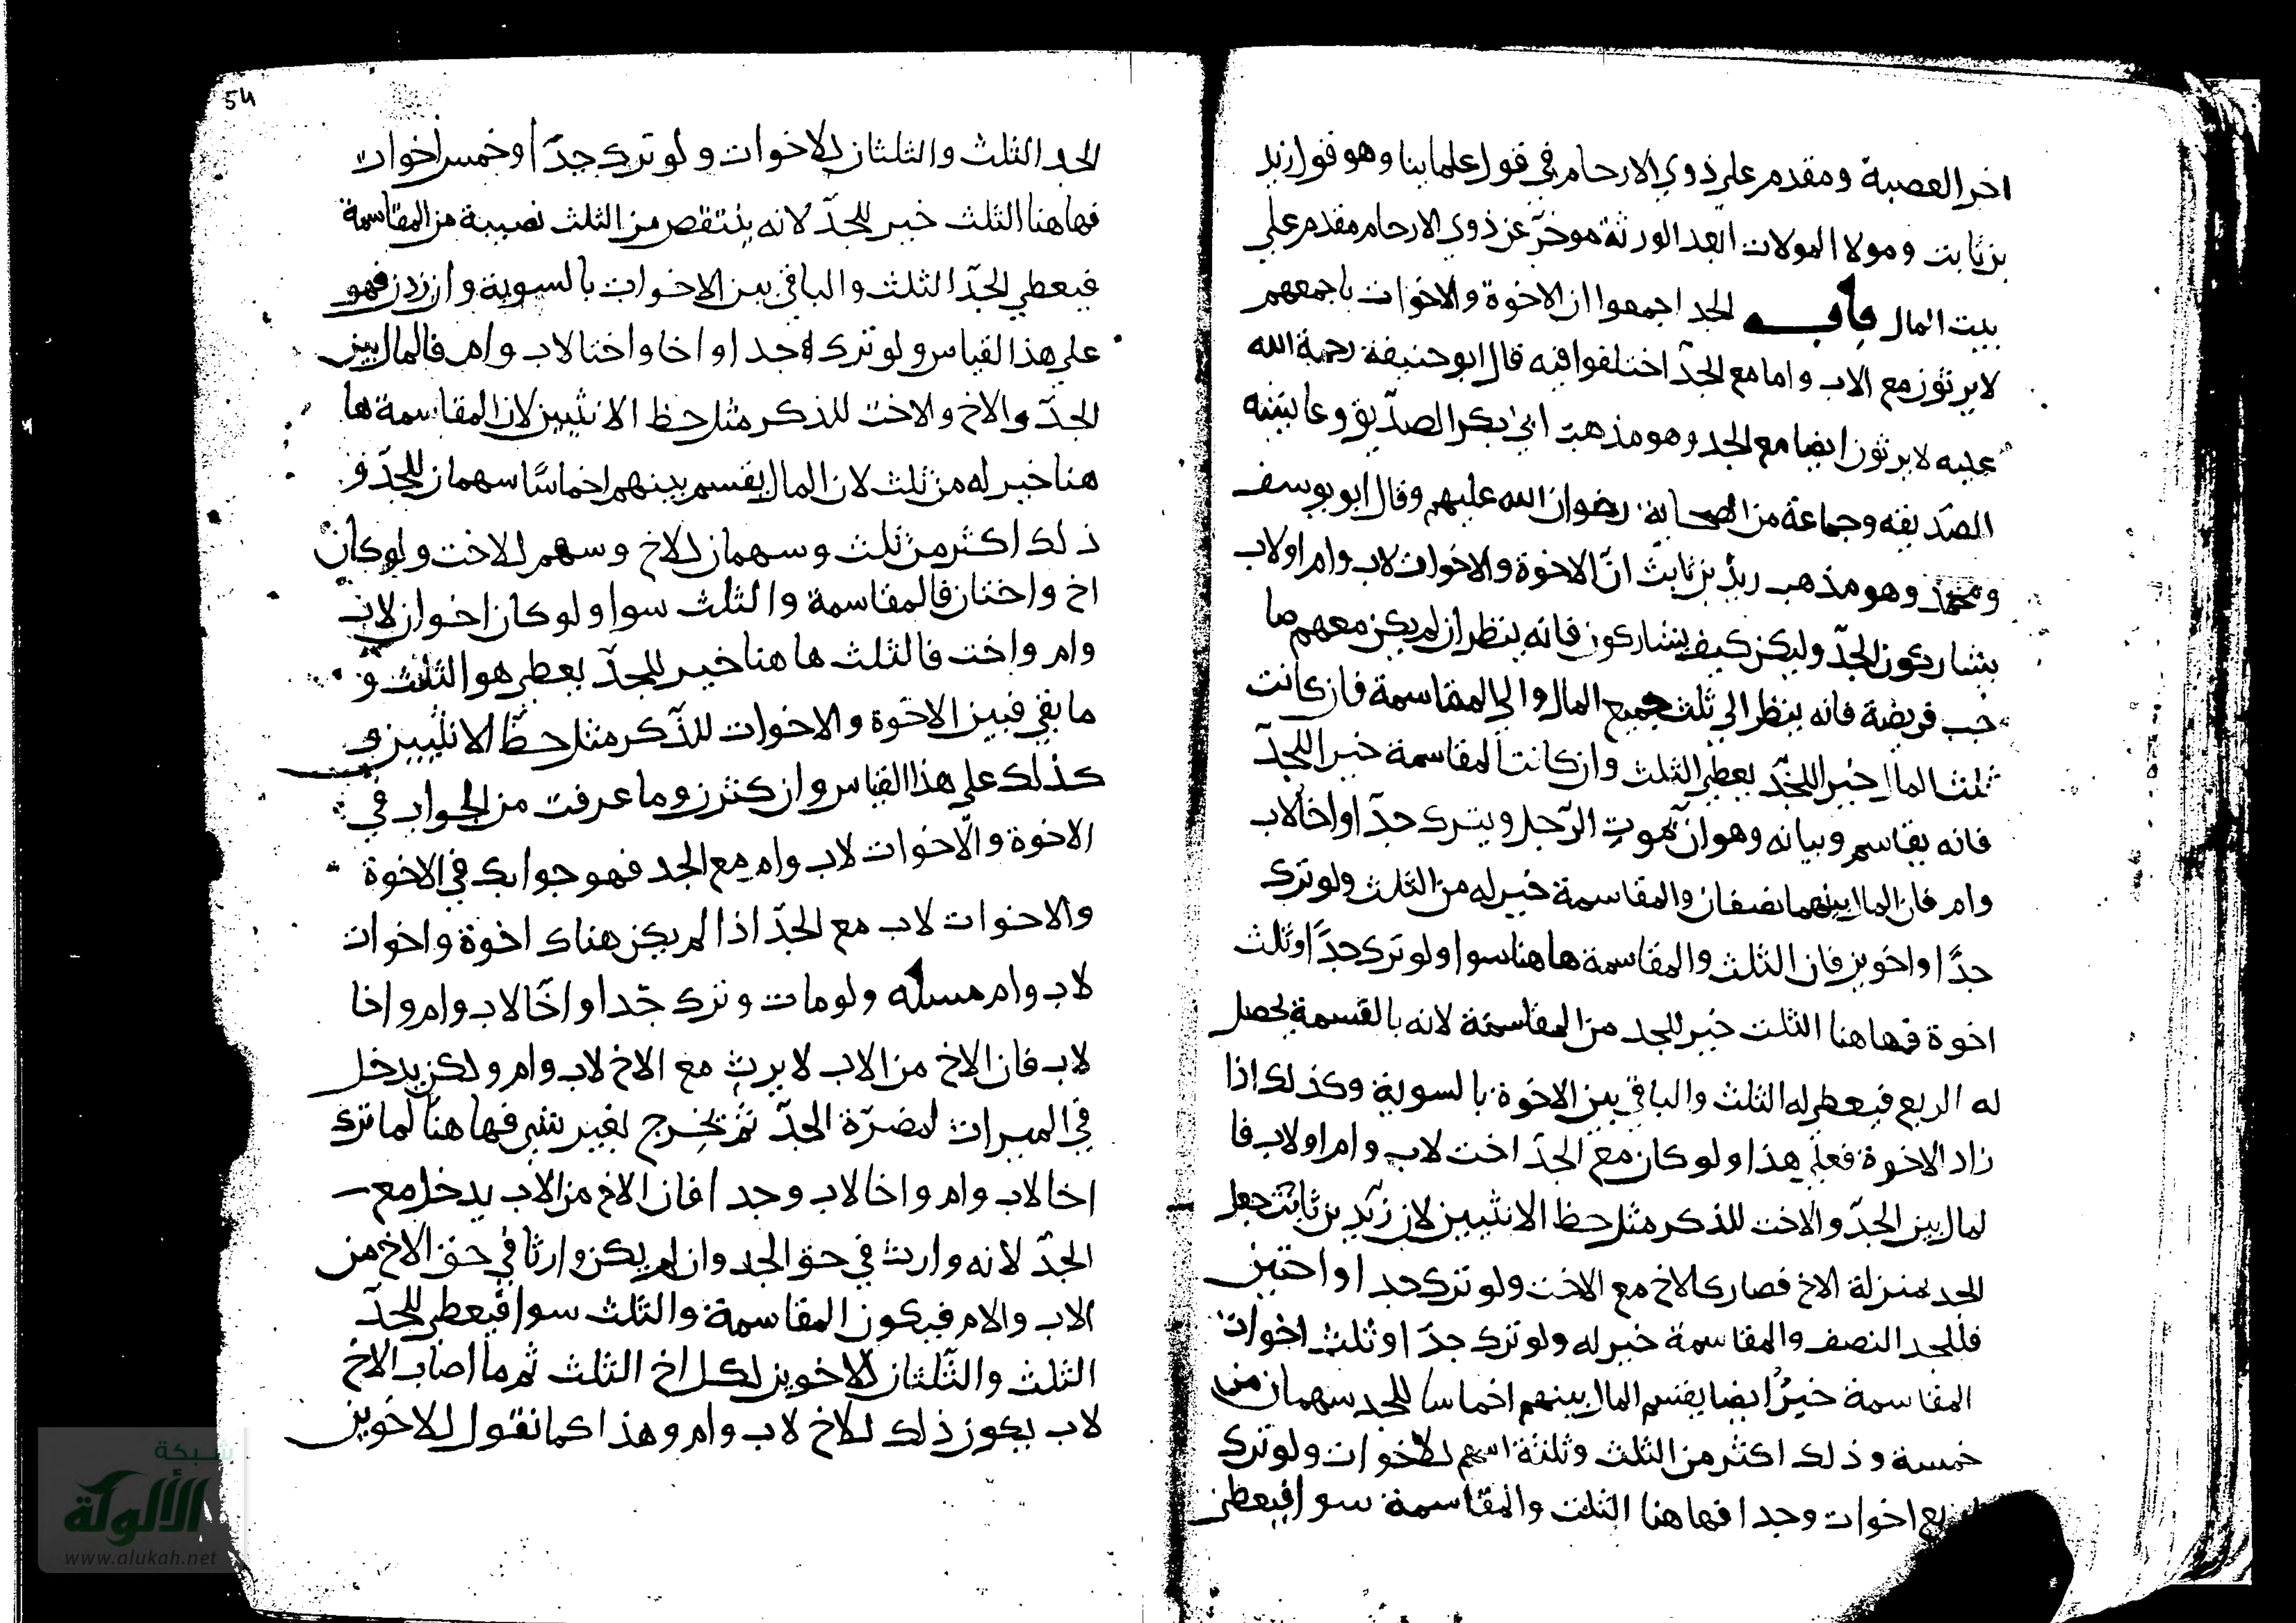 اخر العصبة ومقدم على ذوي الارحام في قول علماينا وهو قول زيد
بن ثابت ومولا المولات ابعد الورثة موخر عن ذوي الارحام مقدم على
بيت المال باب الجد اجمعوا ان الاخوة والاخوات باجمعهم
لا يرثون مع الاب واما مع الجدّ اختلفوا فيه قال ابو حنيفة رحمة الله
عليه لا يرثون ايضا مع الجد وهو مذهب ابي بكر الصدّيق وعايشه
الصدّيقه وجماعة من الصحابة رضوان الله عليهم وقال ابو يوسف
ومحمد وهو مذهب زيد بن ثابت انّ الاخوة والاخوات لاب وام او لاب
يشاركون الجدّ وليكن كيف يتشاركون فانه ينظر ان لم يكن معهم صا
حب فريضة فانه ينظر الي ثلث جميع المال والي المقاسمة فان كانت
ثلث المال خير اللجدّ يعطي الثلث وان كانت المقاسمة خير اللجدّ
فانه يقاسم وبيانه وهو ان يموت الرّجل ويترك جدّا واخا لاب
وام فان المال بينهما نصفان والمقاسمة خير له من الثلث ولو ترك
جدّا واخوين فان الثلث والمقاسمة هاهنا سوا ولو ترك جدّا وثلث
اخوة فهاهنا الثلث خير للجد من المقاسمة لانه بالقسمة يحصل
له الربع فيعطى له الثلث والباقي بين الاخوة بالسوية وكذلك اذا
زاد الاخوة فعلى هذا ولو كان مع الجدّ اخت لاب وام او لاب فا
لمال بين الجدّ والاخت للذكر مثل حظ الانثيين لان زيد بن ثابت جعل
الجد بمنزلة الاخ فصار كالاخ مع الاخت ولو ترك جدا واختين
فللجد النصف والمقاسمة خير له ولو ترك جدّا وثلث اخوات
المقاسمة خيرٌ ايضا يقسم المال بينهم اخماسا للجد سهمان من
خمسة وذلك اكثر من الثلث وثلثة اسهم للاخوات ولو ترك
اربع اخوات وجدا فهاهنا الثلث والمقاسمة سوا فيعطى
54
الجد الثلث والثلثان للاخوات ولو ترك جدّا وخمس اخوات
فهاهنا الثلث خير للجدّ لانه ينتقص من الثلث نصيبه من المقاسمة
فيعطي الجدّ الثلث والباقي بين الاخوات بالسوية وان زدن فهو
على هذا القياس ولو ترك جدا واخا واختا لاب وام فالمال بين
الجدّ والاخ والاخت للذكر مثل حظ الانثيين لان المقاسمة ها
هنا خير له من ثلث لان المال يقسم بينهم اخماسًا سهمان للجدّ و
ذلك اكثر من ثلث وسهمان للاخ وسهم للاخت ولو كان
اخ واختان فالمقاسمة والثلث سوا ولو كان اخوان لاب
وام واخت فالثلث هاهنا خير للجدّ يعطى هو الثلث و
ما بقي فبين الاخوة والاخوات للذّكر مثل حظّ الانثيين و
كذلك على هذا القياس وان كثرن وما عرفت من الجواب في
الاخوة والاخوات لاب وام مع الجد فهو جوابك في الاخوة
والاخوات لاب مع الجدّ اذا لم يكن هناك اخوة واخوات
لاب وام مسله ولو مات وترك جدا واخًا لاب وام واخا
لاب فان الاخ من الاب لا يرث مع الاخ لاب وام ولكن يدخل
في الميراث لمضرّة الجدّ ثم يخرج بغير شي فهاهنا لما ترك
اخا لاب وام واخا لاب وجدا فان الاخ من الاب يدخل مع
الجدّ لانه وارث في حق الجد وان لم يكن وارثا في حق الاخ من
الاب والام فيكون المقاسمة والثلث سوا فيعطى للجدّ
الثلث والثّلثان للاخوين لكل اخ الثلث ثم ما اصاب الاخ
لاب يكون ذلك للاخ لاب وام وهذا كما نقول للاخوين
شبكة
الألوكة
www.alukah.net